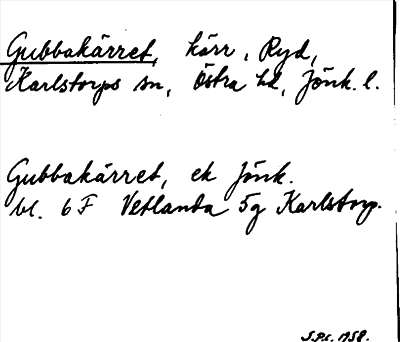 Gubbakärret, kärr, Ryd,
Karlstorps sn, Östra hd, Jönk. l.
Gubbakärret, ek Jönk.
bl. 6 F Vetlanda 5g Karlstorp.
S.P.S. 1958.